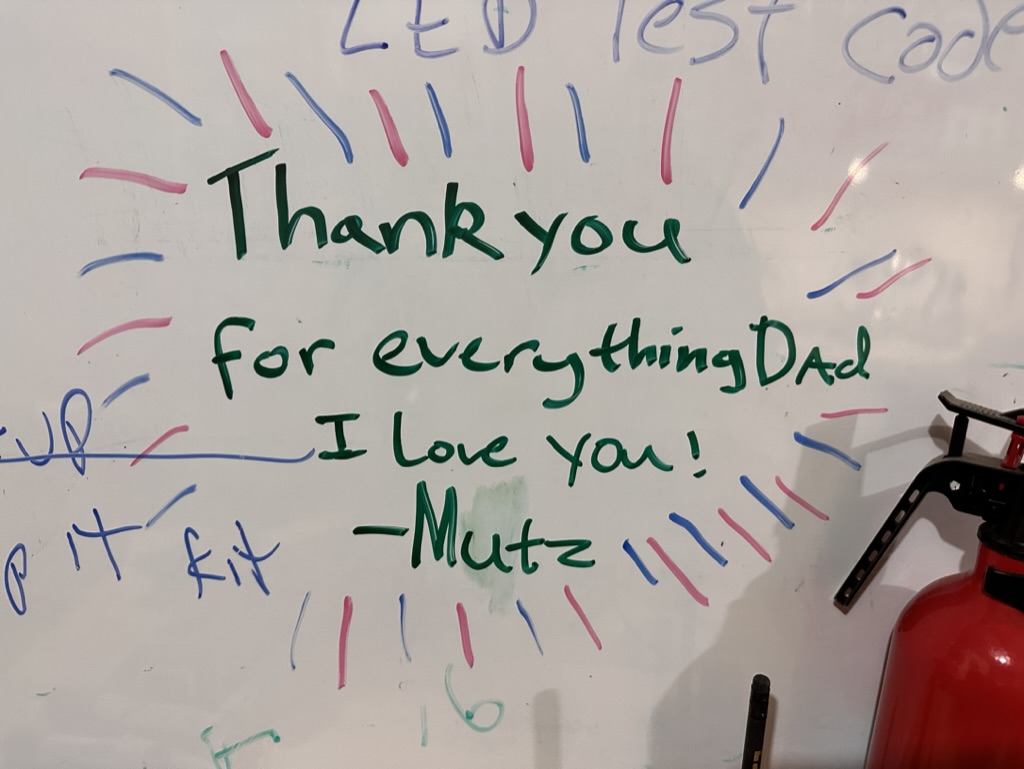 LED Test Code
Thank you
for everything DAd
I Love you!
-Mutz
IT Kit
16